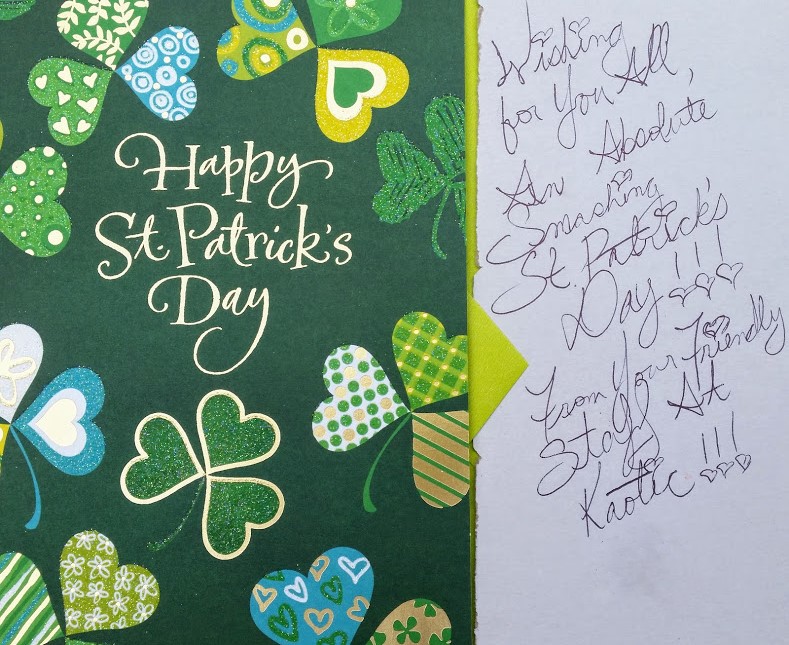 Happy
St. Patrick's
Day
Wishing
for You All,
An Absolute
Smashing
St. Patrick's
Day!!!
From Your Friendly
Staff At
Kaotic!!!